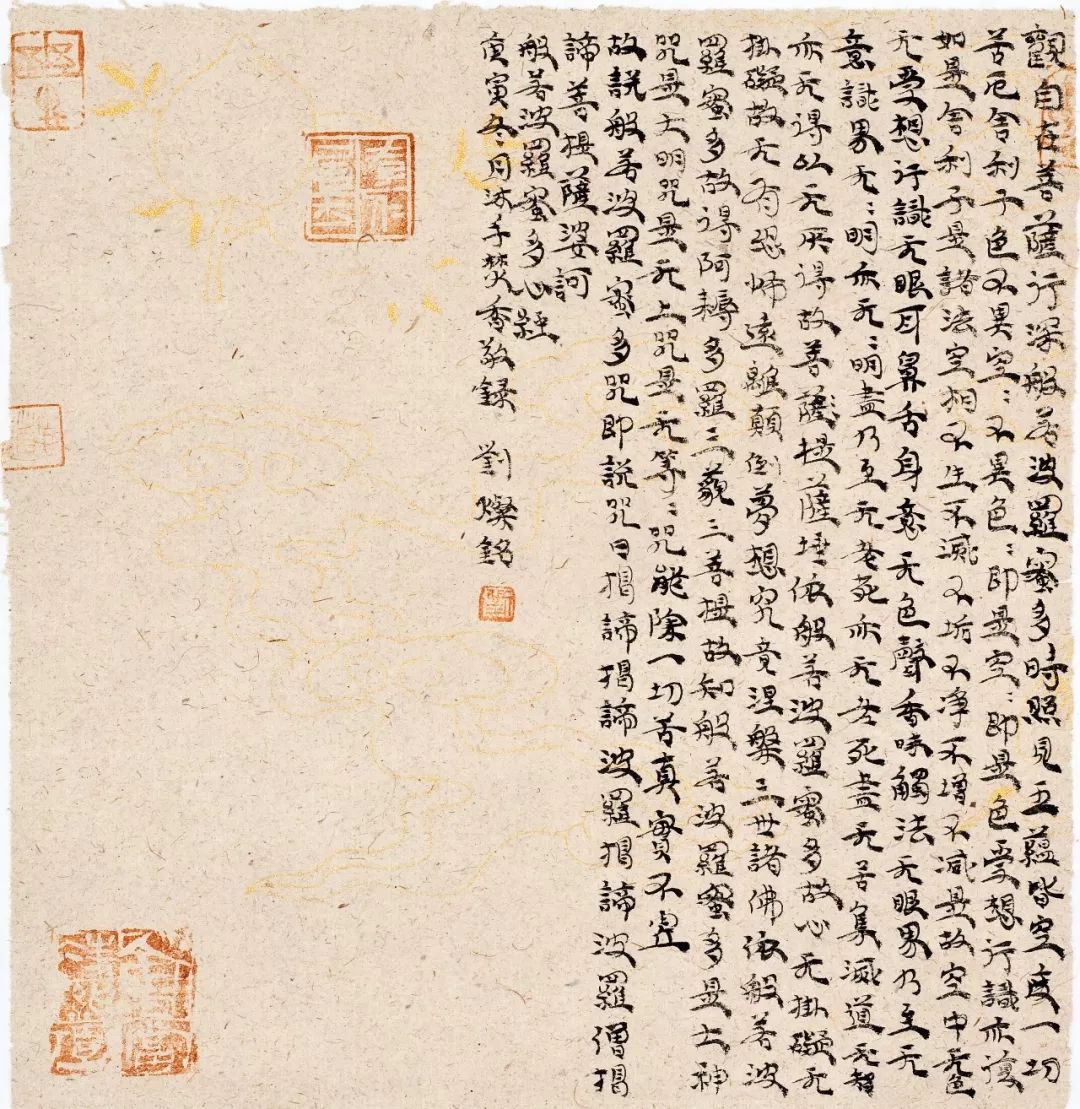 觀自在菩薩行深般若波羅蜜多時照見五蘊皆空度一切
苦厄舍利子色不異空〻不異色〻即是空〻即是色受想行識亦復
如是舍利子是諸法空相不生不滅不垢不淨不增不減是故空中无色
无受想行識无眼耳鼻舌身意无色聲香味觸法无眼界乃至无
意識界无〻明亦无〻明盡乃至无老死亦无老死盡无苦集滅道无智
亦无得以无所得故菩薩提薩埵依般若波羅蜜多故心无掛礙无
掛礙故无有恐怖遠離顛倒夢想究竟涅槃三世諸佛依般若波
羅蜜多故得阿耨多羅三藐三菩提故知般若波羅蜜多是大神
咒是大明咒是无上咒是无等〻咒能除一切苦真實不虛
故說般若波羅蜜多咒即說咒曰揭諦揭諦波羅揭諦波羅僧揭
諦菩提薩婆訶
般若波羅蜜多心經
庚寅冬月沐手焚香敬録 劉燦銘